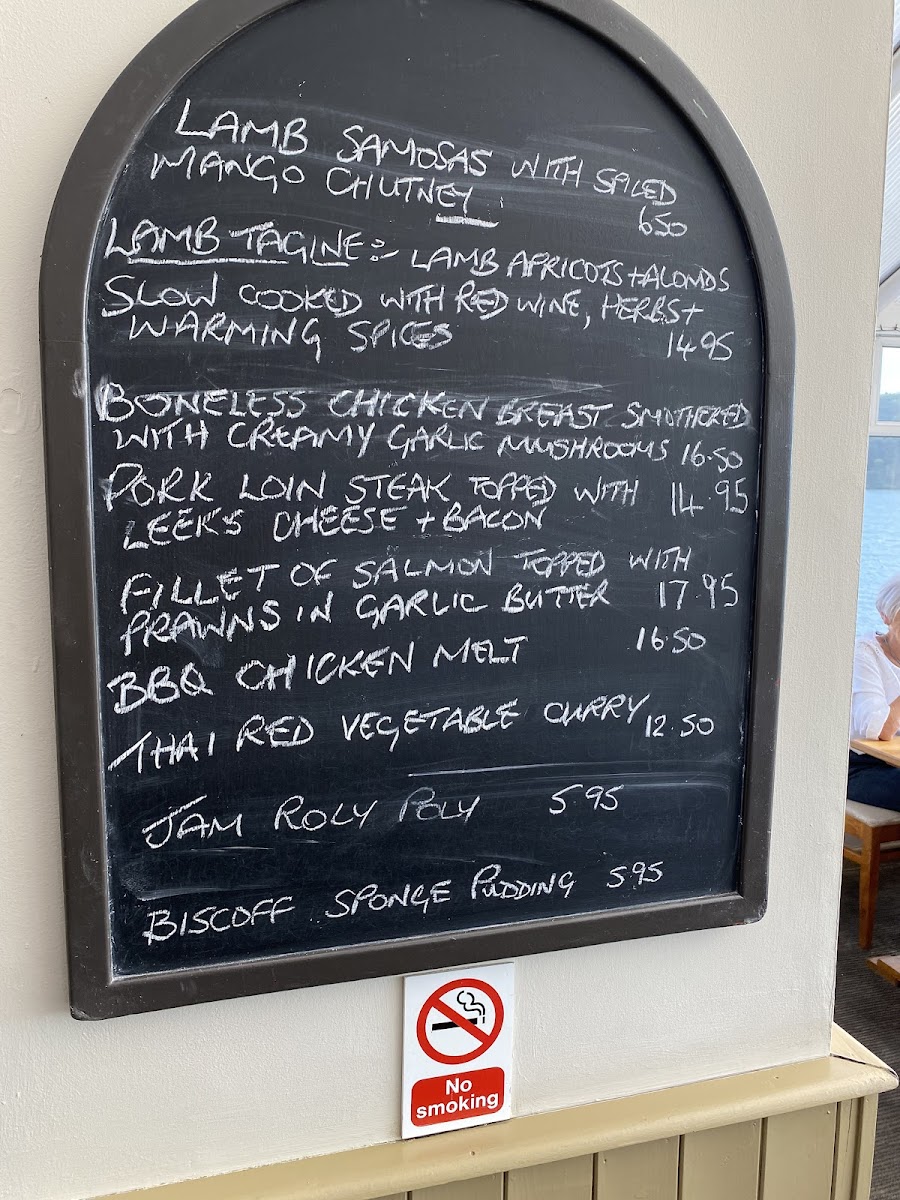 LAMB SAMOSAS WITH SPICED
MANGO CHUTNEY 650
LAMB TAGINE:- LAMB APRICOTS + ALONDS
SLOW COOKED WITH RED WINE, HERBS +
WARMING SPICES 1495
BONELESS CHICKEN BREAST SMOTHERED
WITH CREAMY GARLIC MUSHROOMS 16.50
PORK LOIN STEAK TOPPED WITH 14.95
LEEKS CHEESE + BACON
FILLET OF SALMON TOPPED WITH
PRAWNS IN GARLIC BUTTER 17.95
BBQ CHICKEN MELT 16.50
THAI RED VEGETABLE CURRY 12.50
JAM ROLY POLY 5.95
BISCOFF SPONGE PUDDING 5.95
No
smoking